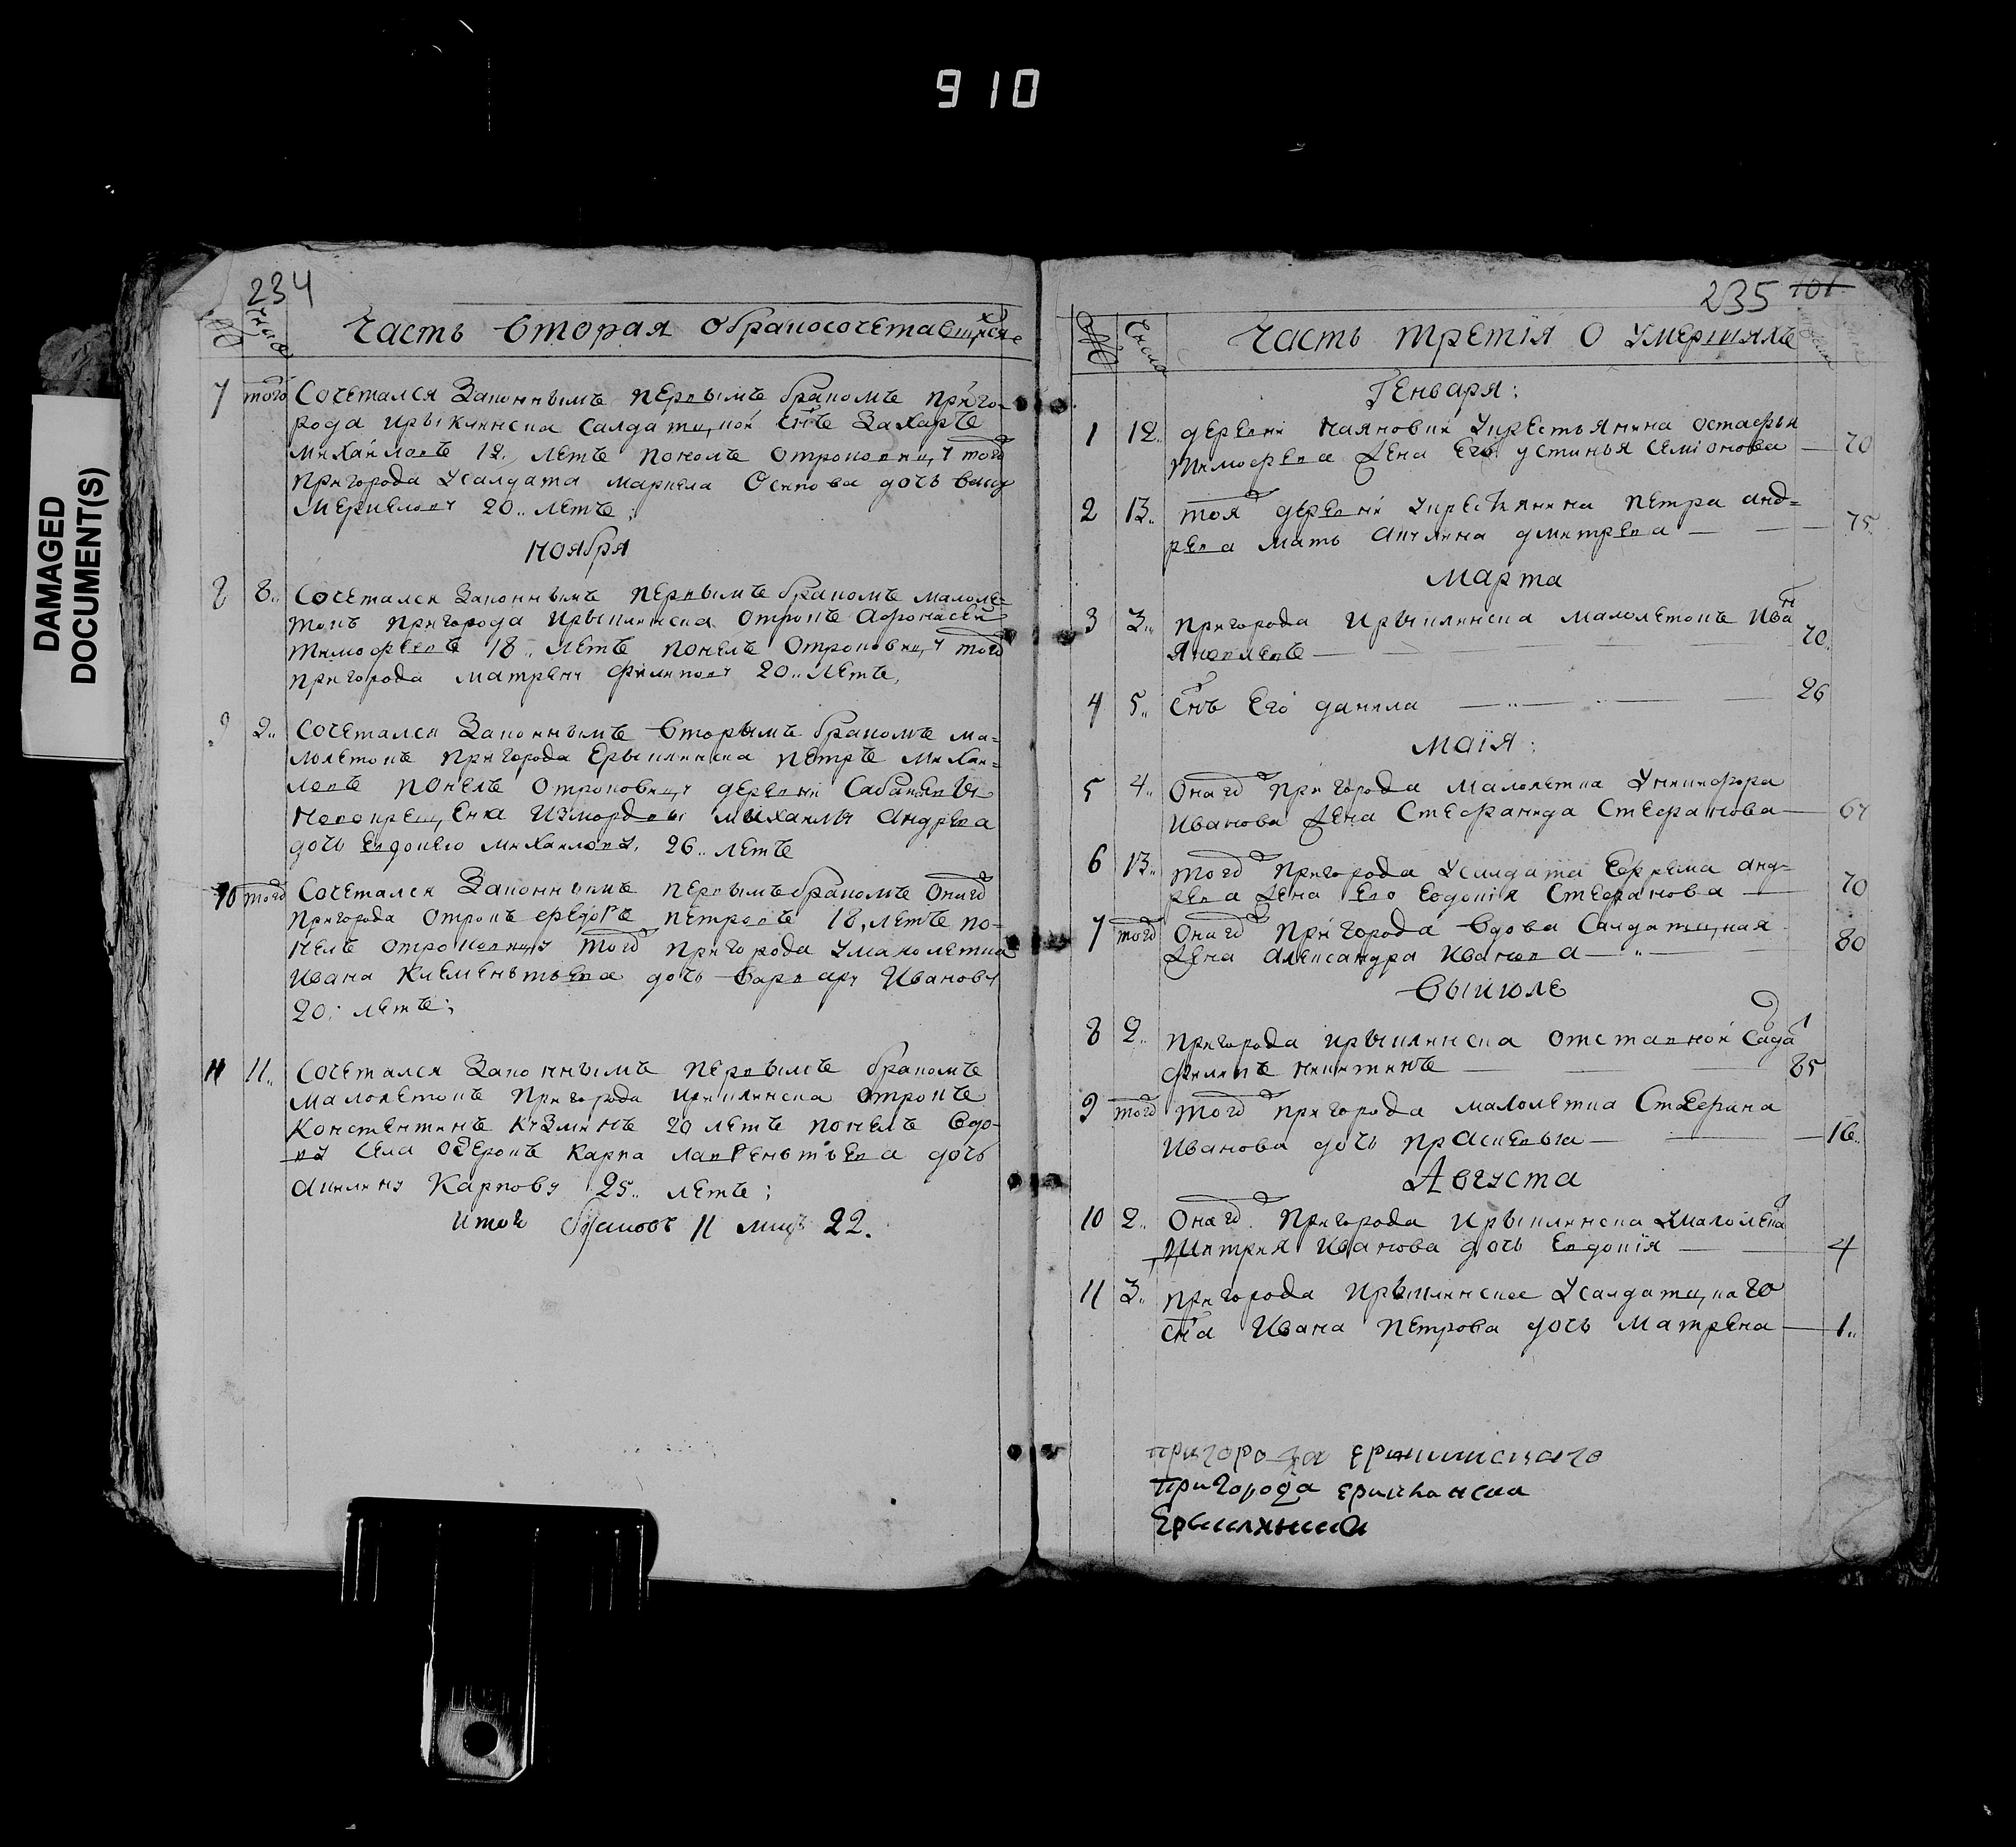 910
DAMAGED
DOCUMENT(S)
234
№ Числа
Часть вторая о бракосочетавшихся
7 того Сочетался Законнымъ первымъ бракомъ приго-
рода ирыклинска Салдатцкой снъ Захаръ
Михаиловъ 12. летъ понелъ отроковицу того
пригорода Усалдата Маркела Осипова дочь васу
Меркелову 20.. летъ;
ноября
8 8.. Сочетался Законнымъ первымъ бракомъ малоле-
токъ пригорода ирыклинска отрокъ Афонасеи
тимофеевъ 18.. летъ понелъ отроковицу того
пригорода матрену филипову 20.. летъ,
9 9.. сочетался Законнымъ вторымъ бракомъ ма-
лолетокъ пригорода Ерыклинска петръ михаи-
ловъ понелъ отроковицу деревни
новокрещена Измордвы михаилы Андреева
дочь Евдокею михаилову, 26.. летъ
10 того Сочетался Законнымъ первымъ бракомъ оного
пригорода отрокъ федоръ петровъ 18, летъ по-
нелъ отроковицу того пригорода Умалолетка
Ивана Клеменьтьева дочь варвару Иванову
20; летъ;
11 11.. Сочетался Законнымъ первымъ бракомъ
малолетокъ пригорода ириклинска отрокъ
Констентинъ Кузминъ 20 летъ понелъ вдо-
ву села озерокъ карпа лавреньтьева дочь
Акилину Карпову 25.. летъ;
итого браковъ 11 лицъ 22.
235 101
№ Числа
Часть третїя о умершихъ
Генваря:
1 12.. деревни каяновки Укрестьянина остафьи
тимофеева жена Его устинья семїонова — 70
2 13.. тоя деревни Укрестьянина петра анд-
реева мать акилина дмитрева — 75.
Марта
3 3.. пригорода ирыклинска малолетокъ Иван
Яковлевъ — 70.
4 5.. снъ Его данила — 26
Маїя:
5 4.. оного пригорода малолетка Уникифора
Иванова жена Стефанида Стефанова — 67
6 13.. того пригорода Усалдата Ефрема анд-
реева жена Его Евдокїя Стефанова — 70
7 того оного пригорода вдова Салдатцкая
жена александра Иванова — 80
выиюле
8 2.. пригорода ирыклинска отставной салда
филипъ никитинъ — 85
9 того того пригорода малолетка Стефана
Иванова дочь прасковья — 16..
Августа
10 2.. оного пригорода ирыклинска Умалолетка
дмитрия Иванова дочь Евдокїя — 4
11 3.. пригорода Ирыклинское Усалдатцкаго
сна Ивана петрова дочь матрена — 1..
пригорода
пригорода